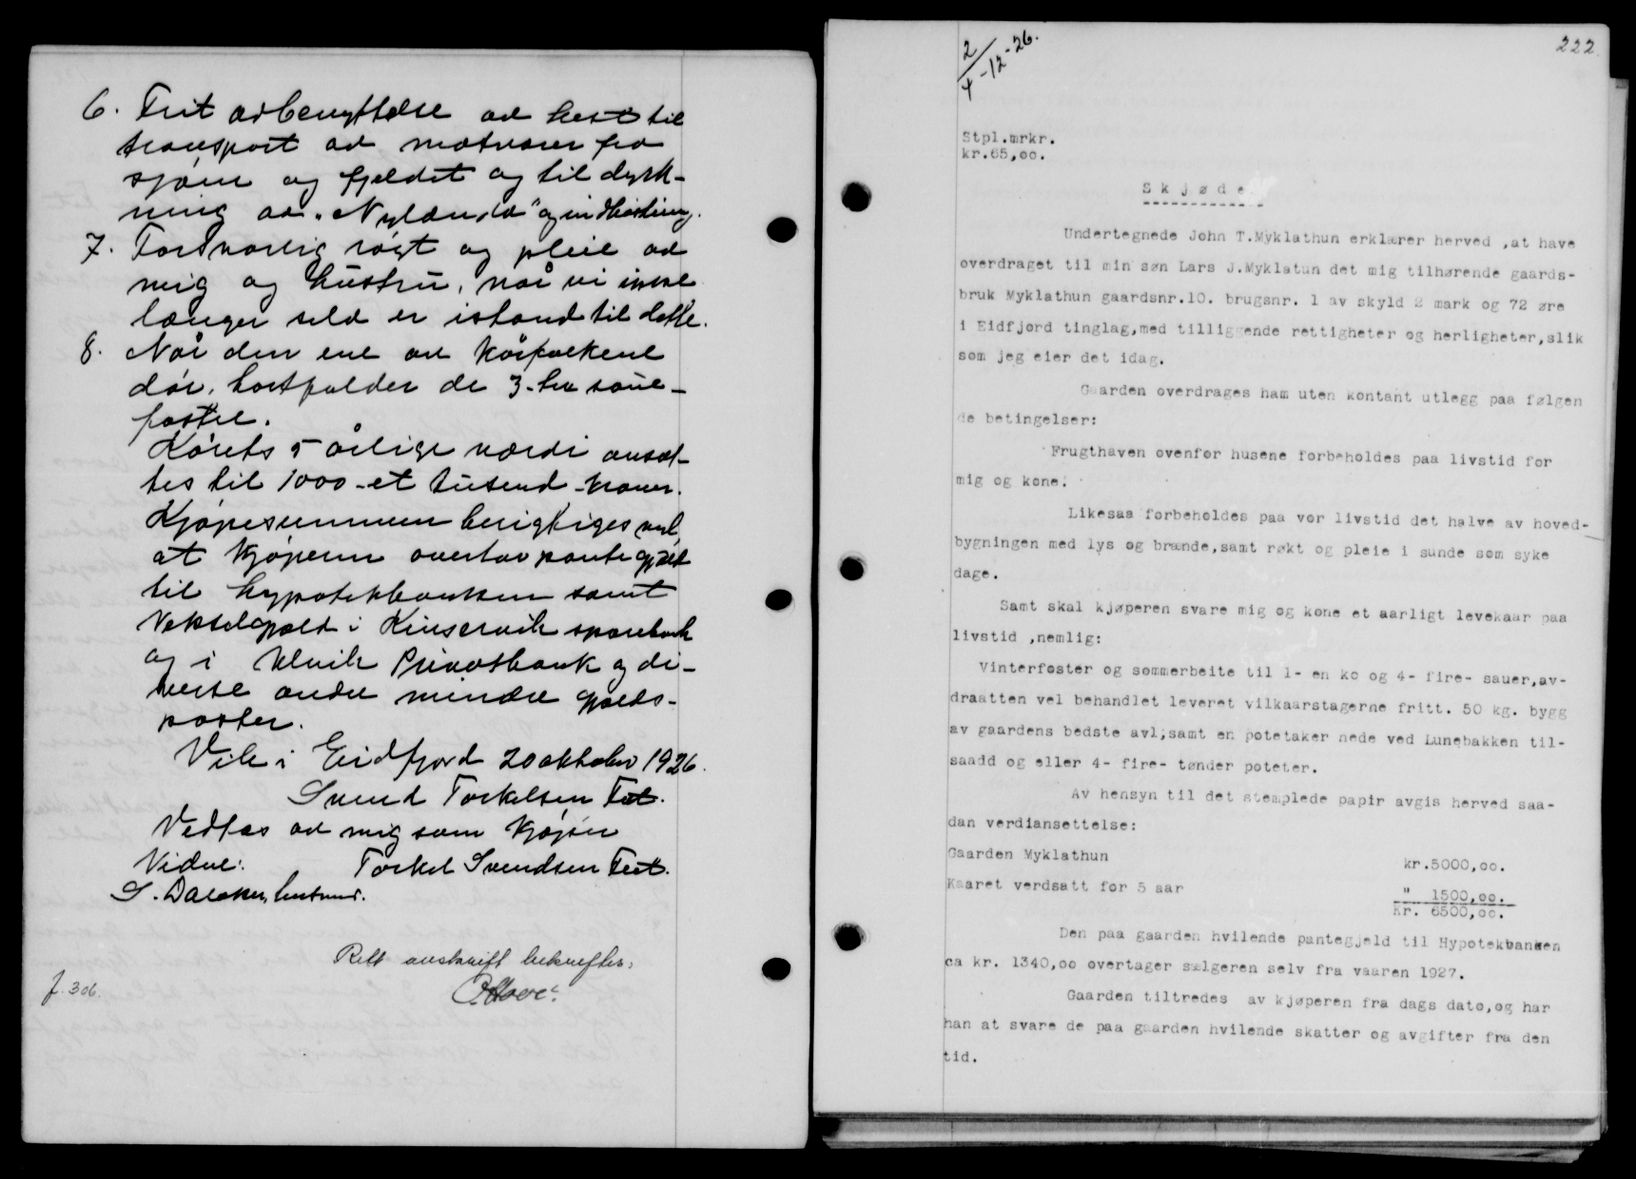 6. Frit avbenyttelse av hest til
transport av matvarer fra
sjøen og fjeldet og til dyrk-
ning av "Nylænda" og indhøsting.
7. Forsvarlig røgt og pleie av
mig og hustru, når vi ikke
længer selv er istand til dette.
8. Når den ene av kårfolkene
dør, bortfalder de 3-tre saue-
fostre.
Kårets 5 årlige værdi ansæt-
tes til 1000 - et tusend - kroner.
Kjøpesummen berigtiges ved
at kjøperen overtar pantegjæld
til hypotekbanken samt
vekselgjæld i Kinservik sparebank
og i Ulvik Privatbank og di-
verse andre mindre gjælds-
poster.
Vik i Eidfjord 20 oktober 1926.
Svend Torkelsen Tveit.
Vedtas av mig som kjøper
Vidne: Torkel Svendsen Tveit.
S. lensmand.
Rett avskrift bekrefter:
f. 306.
2/4-12-26.
222.
Stpl.mrkr.
kr.65,oo.
Skjøde
Undertegnede John T.Myklathun erklærer herved ,at have
overdraget til min søn Lars J.Myklatun det mig tilhørende gaards-
bruk Myklathun gaardsnr.10. brugsnr. 1 av skyld 2 mark og 72 øre
i Eidfjord tinglag,med tilliggende rettigheter og herligheter,slik
som jeg eier det idag.
Gaarden overdrages ham uten kontant utlegg paa følgen
de betingelser:
Frugthaven ovenfor husene forbeholdes paa livstid for
mig og kone.
Likesaa forbeholdes paa vor livstid det halve av hoved-
bygningen med lys og brænde,samt røkt og pleie i sunde som syke
dage.
Samt skal kjøperen svare mig og kone et aarligt levekaar paa
livstid ,nemlig:
Vinterfoster og sommerbeite til 1- en ko og 4- fire- sauer,av-
draatten vel behandlet leveret vilkaarstagerne fritt. 50 kg. bygg
av gaardens bedste avl,samt en potetaker nede ved Lunebakken til-
saadd og eller 4- fire- tønder poteter.
Av hensyn til det stemplede papir avgis herved saa-
dan verdiansettelse:
Gaarden Myklathun kr.5000,oo.
Kaaret verdsatt for 5 aar " 1500,oo.
Kr. 6500,oo.
Den paa gaarden hvilende pantegjeld til Hypotekbanken
ca kr. 1340,oo overtager sælgeren selv fra vaaren 1927.
Gaarden tiltredes av kjøperen fra dags dato,og har
han at svare de paa gaarden hvilende skatter og avgifter fra den
tid.